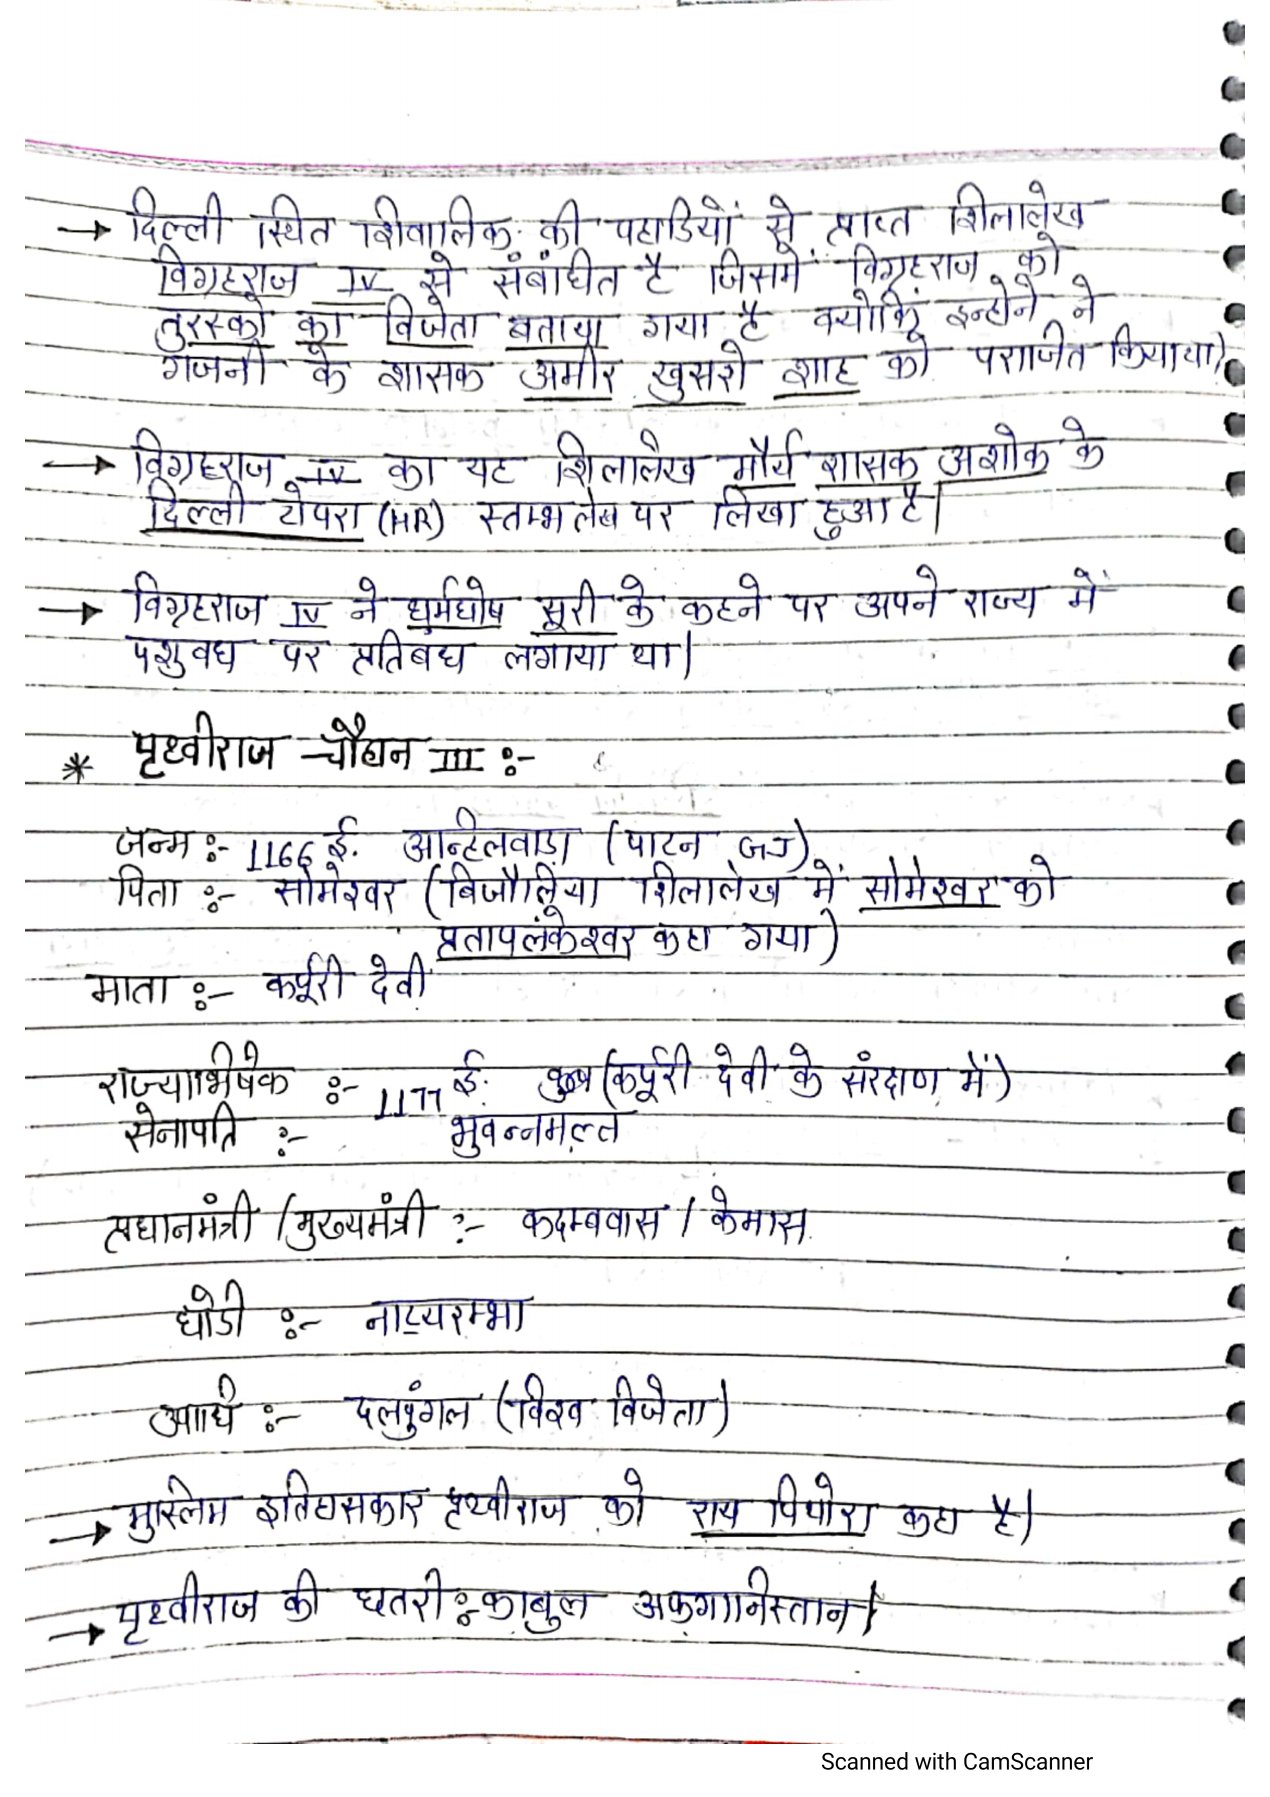 → दिल्ली स्थित शिवालिक की पहाडियों से प्राप्त शिलालेख
विग्रहराज IV से संबंधित है जिसमें विग्रहराज को
तुरस्को का विजेता बताया गया है क्योकि इन्होने ने
गजनी के शासक अमीर खुसरो शाह को पराजित किया था।
→ विग्रहराज IV का यह शिलालेख मौर्य शासक अशोक के
दिल्ली टोपरा (HR) स्तम्भलेख पर लिखा हुआ है।
→ विग्रहराज IV ने धर्मघोष सूरी के कहने पर अपने राज्य में
पशुवध पर प्रतिबंध लगाया था।
* पृथ्वीराज चौहान III :-
जन्म :- 1166 ई. आन्हिलवाडा (पाटन GJ)
पिता :- सोमेश्वर (बिजौलिया शिलालेख में सोमेश्वर को
प्रतापलंकेश्वर कहा गया)
माता :- कर्पूरी देवी
राज्याभिषेक :- 1177 ई. (कर्पूरी देवी के संरक्षण में)
सेनापति :- भुवन्नमल्ल
प्रधानमंत्री / मुख्यमंत्री :- कदम्बवास / केमास
घोडी :- नाट्यरम्भा
:- दलपुंगल (विश्व विजेता)
→ मुस्लिम इतिहासकार पृथ्वीराज को राय पिथोरा कहा है।
→ पृथ्वीराज की छतरी :- काबुल अफगानिस्तान।
Scanned with CamScanner